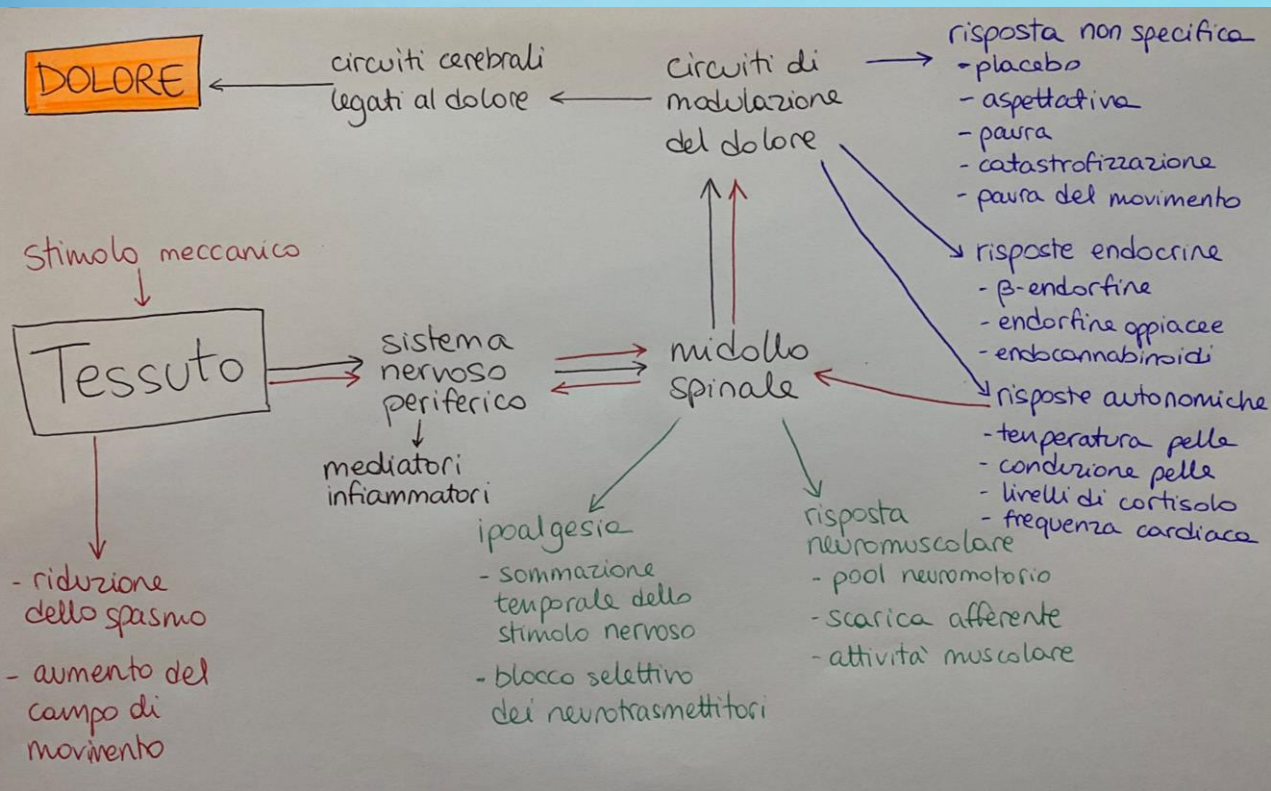 DOLORE
circuiti cerebrali
legati al dolore
circuiti di
modulazione
del dolore
risposta non specifica
- placebo
- aspettativa
- paura
- catastrofizzazione
- paura del movimento
risposte endocrine
- β-endorfine
- endorfine oppiacee
- endocannabinoidi
risposte autonomiche
- temperatura pelle
- conduzione pelle
- livelli di cortisolo
- frequenza cardiaca
stimolo meccanico
Tessuto
sistema
nervoso
periferico
mediatori
infiammatori
midollo
spinale
- riduzione
dello spasmo
- aumento del
campo di
movimento
ipoalgesia
- sommazione
temporale dello
stimolo nervoso
- blocco selettivo
dei neurotrasmettitori
risposta
neuromuscolare
- pool neuromotorio
- scarica afferente
- attività muscolare